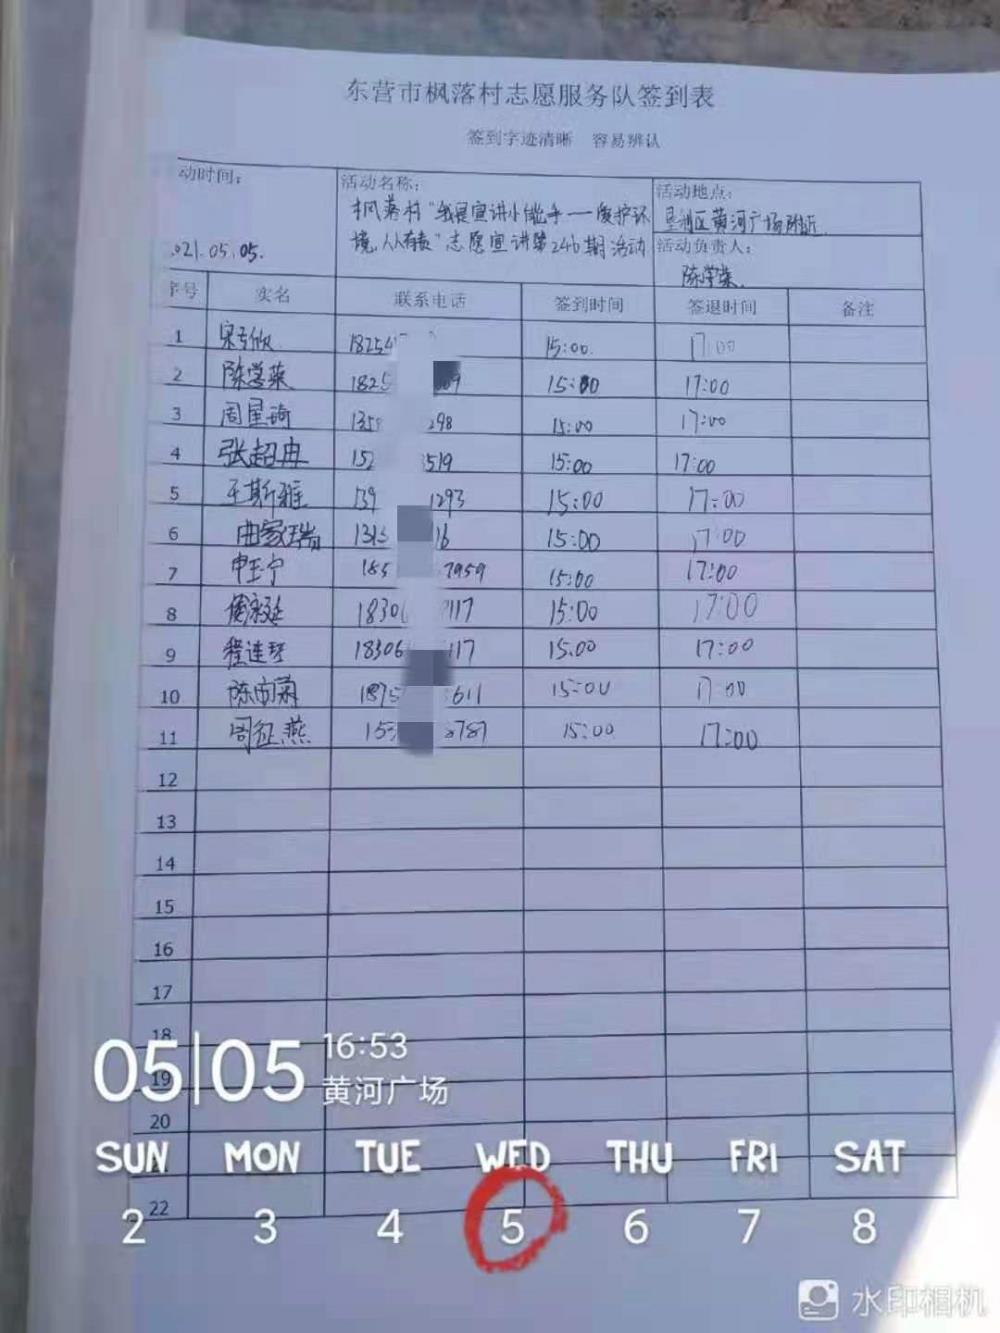 东营市枫落村志愿服务队签到表
签到字迹清晰 容易辨认
动时间: 活动名称: 活动地点:
枫落村"我是宣讲小能手——爱护环 垦利区黄河广场附近
境,人人有责"志愿宣讲第246期活动 活动负责人:
021.05.05. 陈学荣
序号 实名 联系电话 签到时间 签退时间 备注
1 18254 15:00. 17:00
2 陈学荣 1825 15:00 17:00
3 周星琦 135 298 15:00 17:00
4 张超冉 152 3519 15:00 17:00
5 王斯雅 139 1293 15:00 17:00
6 曲家瑞 1313 16 15:00 17:00
7 申玉宁 185 7959 15:00 17:00
8 18306 117 15:00 17:00
9 程连琴 18306 117 15:00 17:00
10 陈雨萧 1875 611 15:00 17:00
11 周征燕 155 8787 15:00 17:00
12
13
14
15
16
17
18
05|05 16:53
19
黄河广场
20
SUN MON TUE WED THU FRI SAT
22
2 3 4 5 6 7 8
水印相机